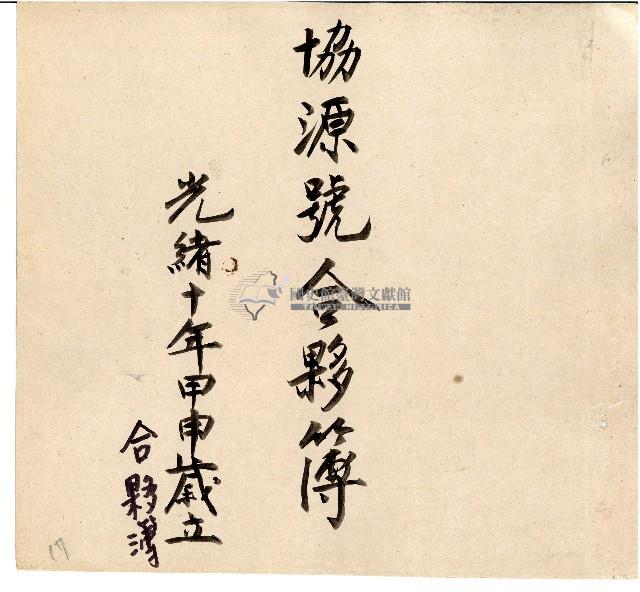 協源號合夥簿
光緒十年甲申歲立
合夥簿
國史館臺灣文獻館
TAIWAN HISTORICA
17